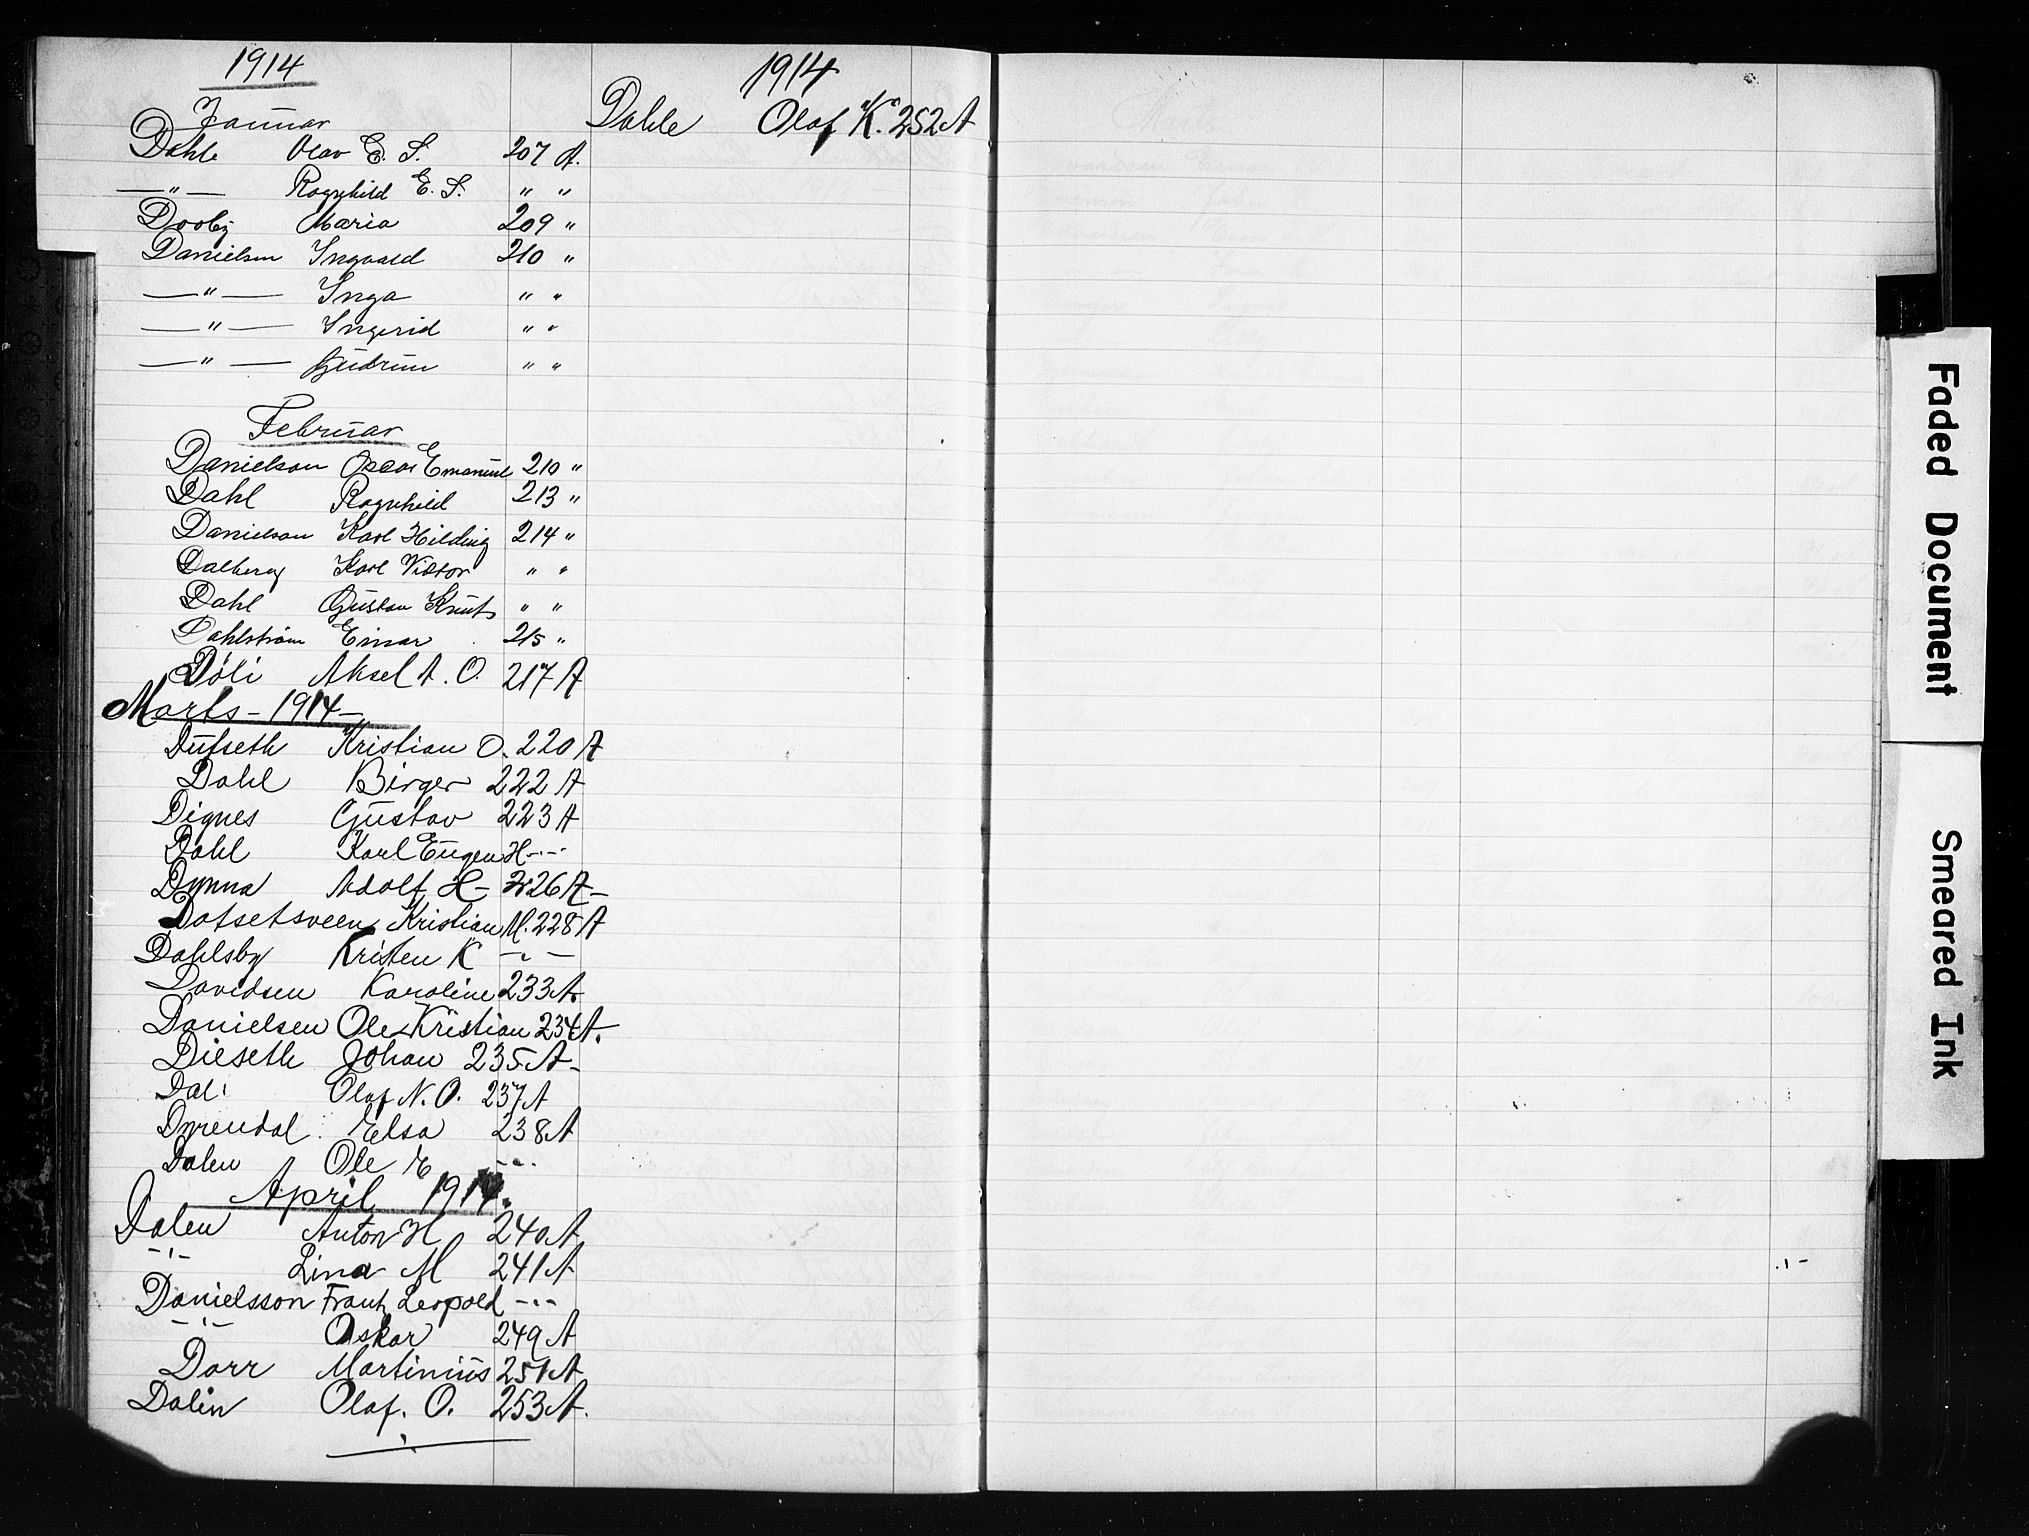 1914
Januar
Dahle Olav E. S. 207 A.
—"— Ragnhild E. S. " "
Dooby Maria 209 "
Danielsen Ingvald 210 "
—"— Inga " "
—"— Ingerid " "
—"— Gudrun " "
Februar
Danielson Oscar Emanuel 210 "
Dahl Ragnhild 213 "
Danielson Karl Hilding 214 "
Dalberg Karl Viktor " "
Dahl Gustav Knut " "
Dahlström Einar 215 "
Döli Aksel A. O. 217 A
Marts - 1914 -
Dufseth Kristian O. 220 A
Dahl Birger 222 A
Dignes Gustav 223 A
Dahl Karl Eugen H -"-
Dynna Adolf H - 226 A -
Dotsetsveen Kristian M. 228 A
Dahlsby Kristen K -"-
Davidsen Karoline 233 A.
Danielsen Ole Kristian 234 A.
Dieseth Johan 235 A -
Dali Olaf N. O. 237 A
Dyrendal Elsa 238 A
Dalen Ole E -"-
April 1914.
Dalen Anton H 240 A
-"- Lina M 241 A
Danielsson Frantz Leopold -"-
-"- Oskar 249 A
Dorr Martinius 251 A
Dalin Olaf. O. 253 A.
1914
Dahle Olaf "K". 252 A
Faded Document
Smeared Ink